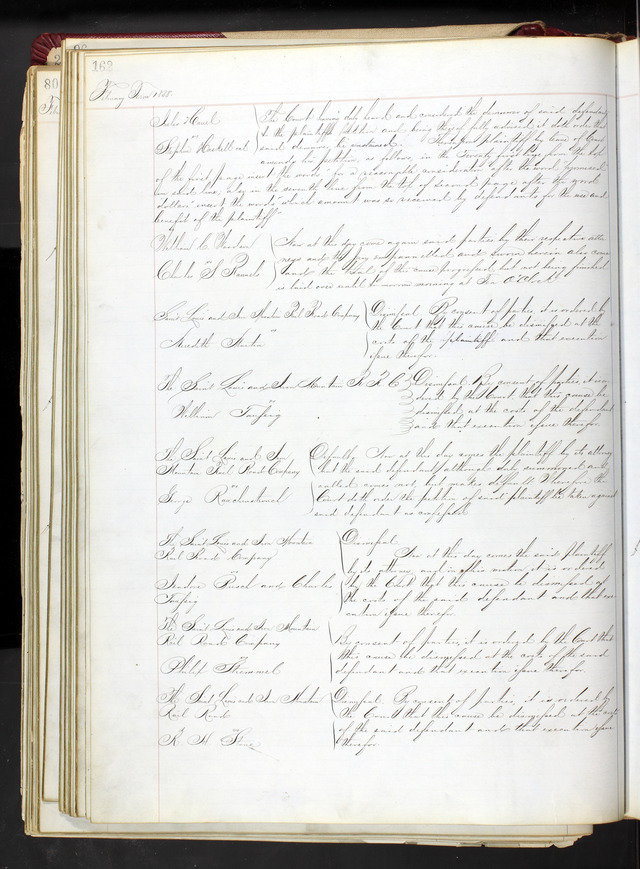 162
80
February Term 1858
Jules
The Court having duly heard and considered the demurrer of said defendant
to the plaintiffs petition and being thereof fully advised, it doth order that
vs
Stephen
said demurrer be sustained. Thereupon plaintiff by leave of Court
amends his petition, as follows, in the Seventy first page from the top
of the first page insert the words "for a reasonable consideration" after the word
in said line, also in the seventh line from the top of second page after the word
dollars insert the words "which amount was so received by defendants for the use and
benefit of the plaintiff"
William C.
Now at this day come again said parties by their respective attor
neys and the jury empannelled and sworn herein also come
vs
Charles S.
and the trial of the cause progressed, but not being finished
is laid over until to morrow morning at Ten O'Clock.
Saint Louis and Iron Mountain Rail Road Company
Dismissed. By consent of parties it is ordered by
the Court that this cause be dismissed at the
vs
Meredith
costs of the plaintiff and that execution
issue therefor.
The Saint Louis and Iron Mountain R. R. C
Dismissed. By consent of parties it is or
dered by the Court that this cause be
vs
William
dismissed, at the costs of the defendant
and that execution issue therefor
The Saint Louis and Iron
Mountain Rail Road Company
Default. Now at this day comes the plaintiff by its attorney
but the said defendant although duly summoned and
vs
George
called comes not, but makes default. Wherefore the
Court doth order the petition of said plaintiff be taken against
said defendant as confessed.
The Saint Louis and Iron Mountain
Rail Road Company
Dismissed.
Now at this day comes the said plaintiff
vs
and Charles
by its attorney, and on its motion it is ordered
by the Court that this cause be dismissed at
the costs of the said defendant and that exe
cution issue therefor
The Saint Louis and Iron Mountain
Rail Road Company
vs
Philip
By consent of parties, it is ordered by the Court that
this cause be dismissed at the costs of the said
defendant and that execution issue therefor.
The Saint Louis and Iron Mountain
Rail Road
Dismissed. By consent of parties, it is ordered by
the Court that this cause be dismissed at the costs
vs
R. H.
of the said defendant and that execution issue
therefor.